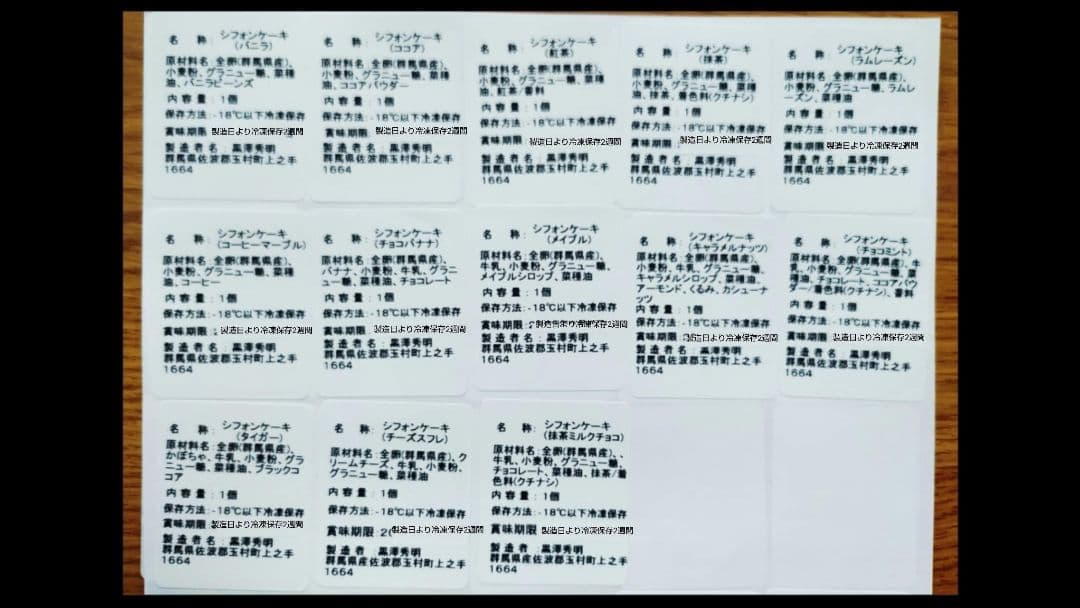 名 称: シフォンケーキ
(バニラ)
原材料名:全卵(群馬県産)、
小麦粉、グラニュー糖、菜種
油、バニラビーンズ
内容量:1個
保存方法:-18℃以下冷凍保存
賞味期限 製造日より冷凍保存2週間
製造者名:黒澤秀明
群馬県佐波郡玉村町上之手
1664
名 称: シフォンケーキ
(ココア)
原材料名:全卵(群馬県産)、
小麦粉、グラニュー糖、菜種
油、ココアパウダー
内容量:1個
保存方法:-18℃以下冷凍保存
賞味期限 製造日より冷凍保存2週間
製造者名:黒澤秀明
群馬県佐波郡玉村町上之手
1664
名 称: シフォンケーキ
(紅茶)
原材料名:全卵(群馬県産)、
小麦粉、グラニュー糖、菜種
油、紅茶/香料
内容量:1個
保存方法:-18℃以下冷凍保存
賞味期限 製造日より冷凍保存2週間
製造者名:黒澤秀明
群馬県佐波郡玉村町上之手
1664
名 称: シフォンケーキ
(抹茶)
原材料名:全卵(群馬県産)、
小麦粉、グラニュー糖、菜種
油、抹茶/着色料(クチナシ)
内容量:1個
保存方法:-18℃以下冷凍保存
賞味期限:製造日より冷凍保存2週間
製造者名:黒澤秀明
群馬県佐波郡玉村町上之手
1664
名 称: シフォンケーキ
(ラムレーズン)
原材料名:全卵(群馬県産)、
小麦粉、グラニュー糖、ラムレ
ーズン、菜種油
内容量:1個
保存方法:-18℃以下冷凍保存
賞味期限 製造日より冷凍保存2週間
製造者名:黒澤秀明
群馬県佐波郡玉村町上之手
1664
名 称: シフォンケーキ
(コーヒーマーブル)
原材料名:全卵(群馬県産)、
小麦粉、グラニュー糖、菜種
油、コーヒー
内容量:1個
保存方法:-18℃以下冷凍保存
賞味期限:製造日より冷凍保存2週間
製造者名:黒澤秀明
群馬県佐波郡玉村町上之手
1664
名 称: シフォンケーキ
(チョコバナナ)
原材料名:全卵(群馬県産)、
バナナ、小麦粉、牛乳、グラニ
ュー糖、菜種油、チョコレート
内容量:1個
保存方法:-18℃以下冷凍保存
賞味期限:製造日より冷凍保存2週間
製造者名:黒澤秀明
群馬県佐波郡玉村町上之手
1664
名 称: シフォンケーキ
(メイプル)
原材料名:全卵(群馬県産)、
牛乳、小麦粉、グラニュー糖、
メイプルシロップ、菜種油
内容量:1個
保存方法:-18℃以下冷凍保存
賞味期限:製造日より冷凍保存2週間
製造者名:黒澤秀明
群馬県佐波郡玉村町上之手
1664
名 称: シフォンケーキ
(キャラメルナッツ)
原材料名:全卵(群馬県産)、
小麦粉、牛乳、グラニュー糖、
キャラメルシロップ、菜種油、
アーモンド、くるみ、カシューナ
ッツ
内容量:1個
保存方法:-18℃以下冷凍保存
賞味期限:製造日より冷凍保存2週間
製造者名:黒澤秀明
群馬県佐波郡玉村町上之手
1664
名 称: シフォンケーキ
(チョコミント)
原材料名:全卵(群馬県産)、牛
乳、小麦粉、グラニュー糖、菜
種油、チョコレート、ココアパウ
ダー/着色料(クチナシ)、香料
内容量:1個
保存方法:-18℃以下冷凍保存
賞味期限 製造日より冷凍保存2週間
製造者名:黒澤秀明
群馬県佐波郡玉村町上之手
1664
名 称: シフォンケーキ
(タイガー)
原材料名:全卵(群馬県産)、
かぼちゃ、牛乳、小麦粉、グラ
ニュー糖、菜種油、ブラックコ
コア
内容量:1個
保存方法:-18℃以下冷凍保存
賞味期限:製造日より冷凍保存2週間
製造者名:黒澤秀明
群馬県佐波郡玉村町上之手
1664
名 称: シフォンケーキ
(チーズスフレ)
原材料名:全卵(群馬県産)、ク
リームチーズ、牛乳、小麦粉、
グラニュー糖、菜種油
内容量:1個
保存方法:-18℃以下冷凍保存
賞味期限:2(製造日より冷凍保存2週間
製造者 名:黒澤秀明
群馬県産佐波郡玉村町上之手
1664
名 称: シフォンケーキ
(抹茶ミルクチョコ)
原材料名:全卵(群馬県産)、、
牛乳、小麦粉、グラニュー糖、
チョコレート、菜種油、抹茶/着
色料(クチナシ)
内容量:1個
保存方法:-18℃以下冷凍保存
賞味期限 製造日より冷凍保存2週間
製造者名:黒澤秀明
群馬県産佐波郡玉村町上之手
1664